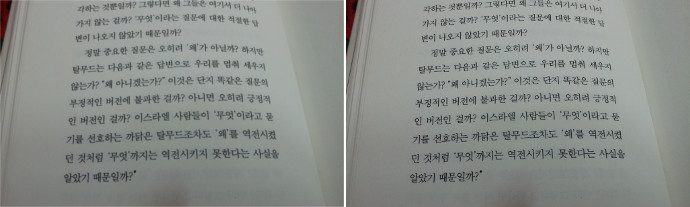 각하는 것뿐일까? 그렇다면 왜 그들은 여기서 더 나아
가지 않는 걸까? '무엇'이라는 질문에 대한 적절한 답
변이 나오지 않았기 때문일까?
정말 중요한 질문은 오히려 '왜'가 아닐까? 하지만
탈무드는 다음과 같은 답변으로 우리를 멈춰 세우지
않는가? "왜 아니겠는가?" 이것은 단지 똑같은 질문의
부정적인 버전에 불과한 걸까? 아니면 오히려 긍정적
인 버전인 걸까? 이스라엘 사람들이 '무엇'이라고 묻
기를 선호하는 까닭은 탈무드조차도 '왜'를 역전시켰
던 것처럼 '무엇'까지는 역전시키지 못한다는 사실을
알았기 때문일까?*
각하는 것뿐일까? 그렇다면 왜 그들은 여기서 더 나아
가지 않는 걸까? '무엇'이라는 질문에 대한 적절한 답
변이 나오지 않았기 때문일까?
정말 중요한 질문은 오히려 '왜'가 아닐까? 하지만
탈무드는 다음과 같은 답변으로 우리를 멈춰 세우지
않는가? "왜 아니겠는가?" 이것은 단지 똑같은 질문의
부정적인 버전에 불과한 걸까? 아니면 오히려 긍정적
인 버전인 걸까? 이스라엘 사람들이 '무엇'이라고 묻
기를 선호하는 까닭은 탈무드조차도 '왜'를 역전시켰
던 것처럼 '무엇'까지는 역전시키지 못한다는 사실을
알았기 때문일까?*